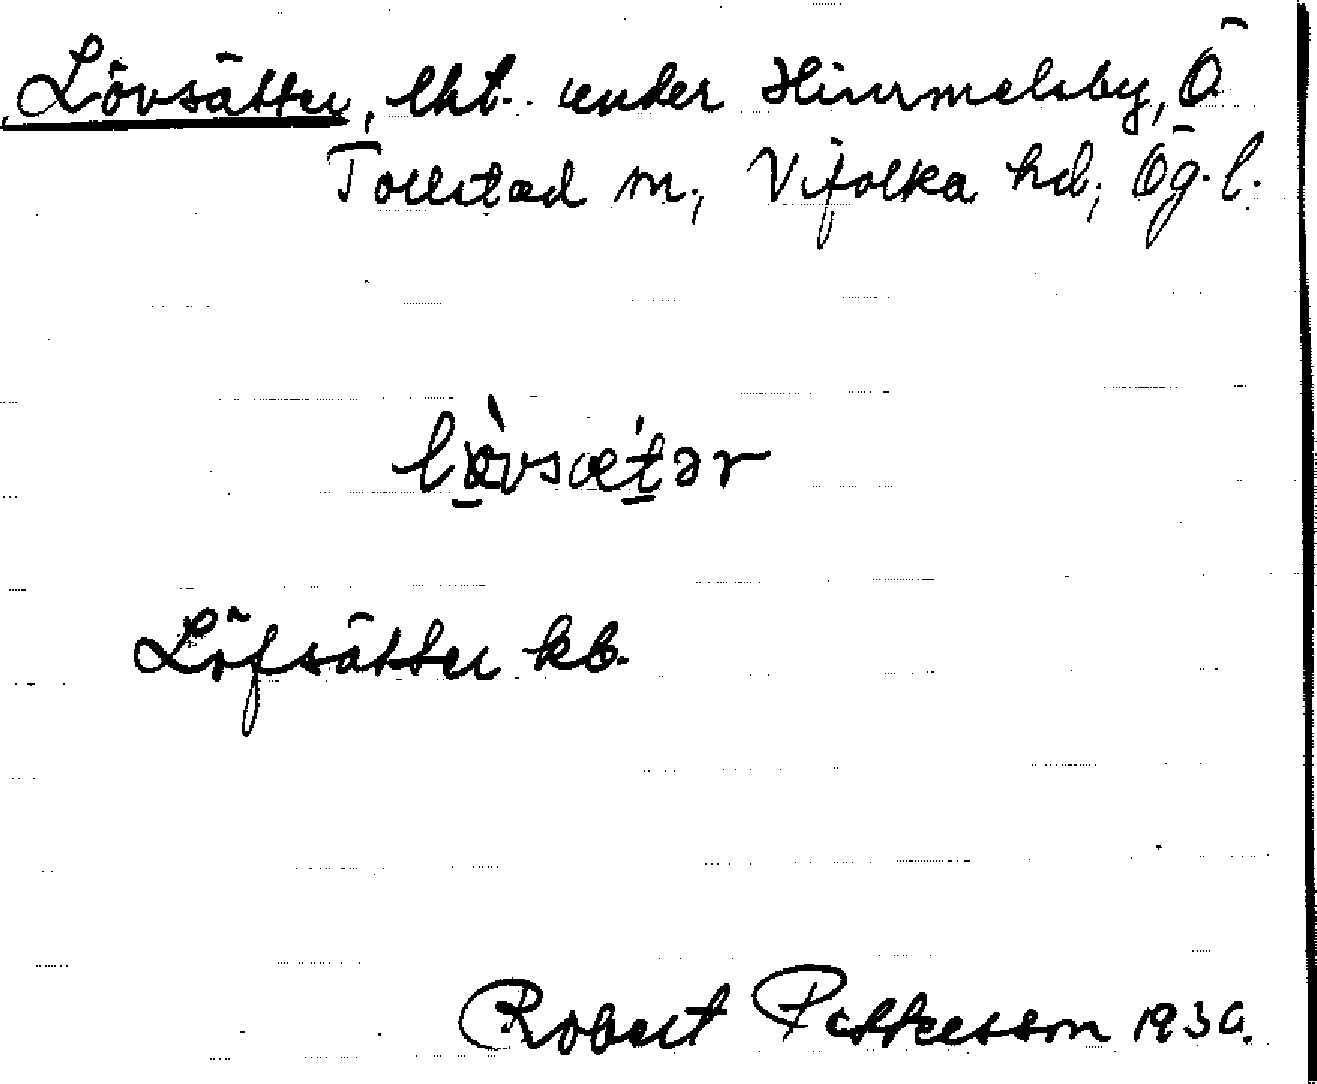 Lövsätter, lht. under Himmelsby, Ö
Tollstad sn, Vifolka hd, Ög. l.
lø̀vsætər
Löfsätter kb.
Robert Pettersson 1930.